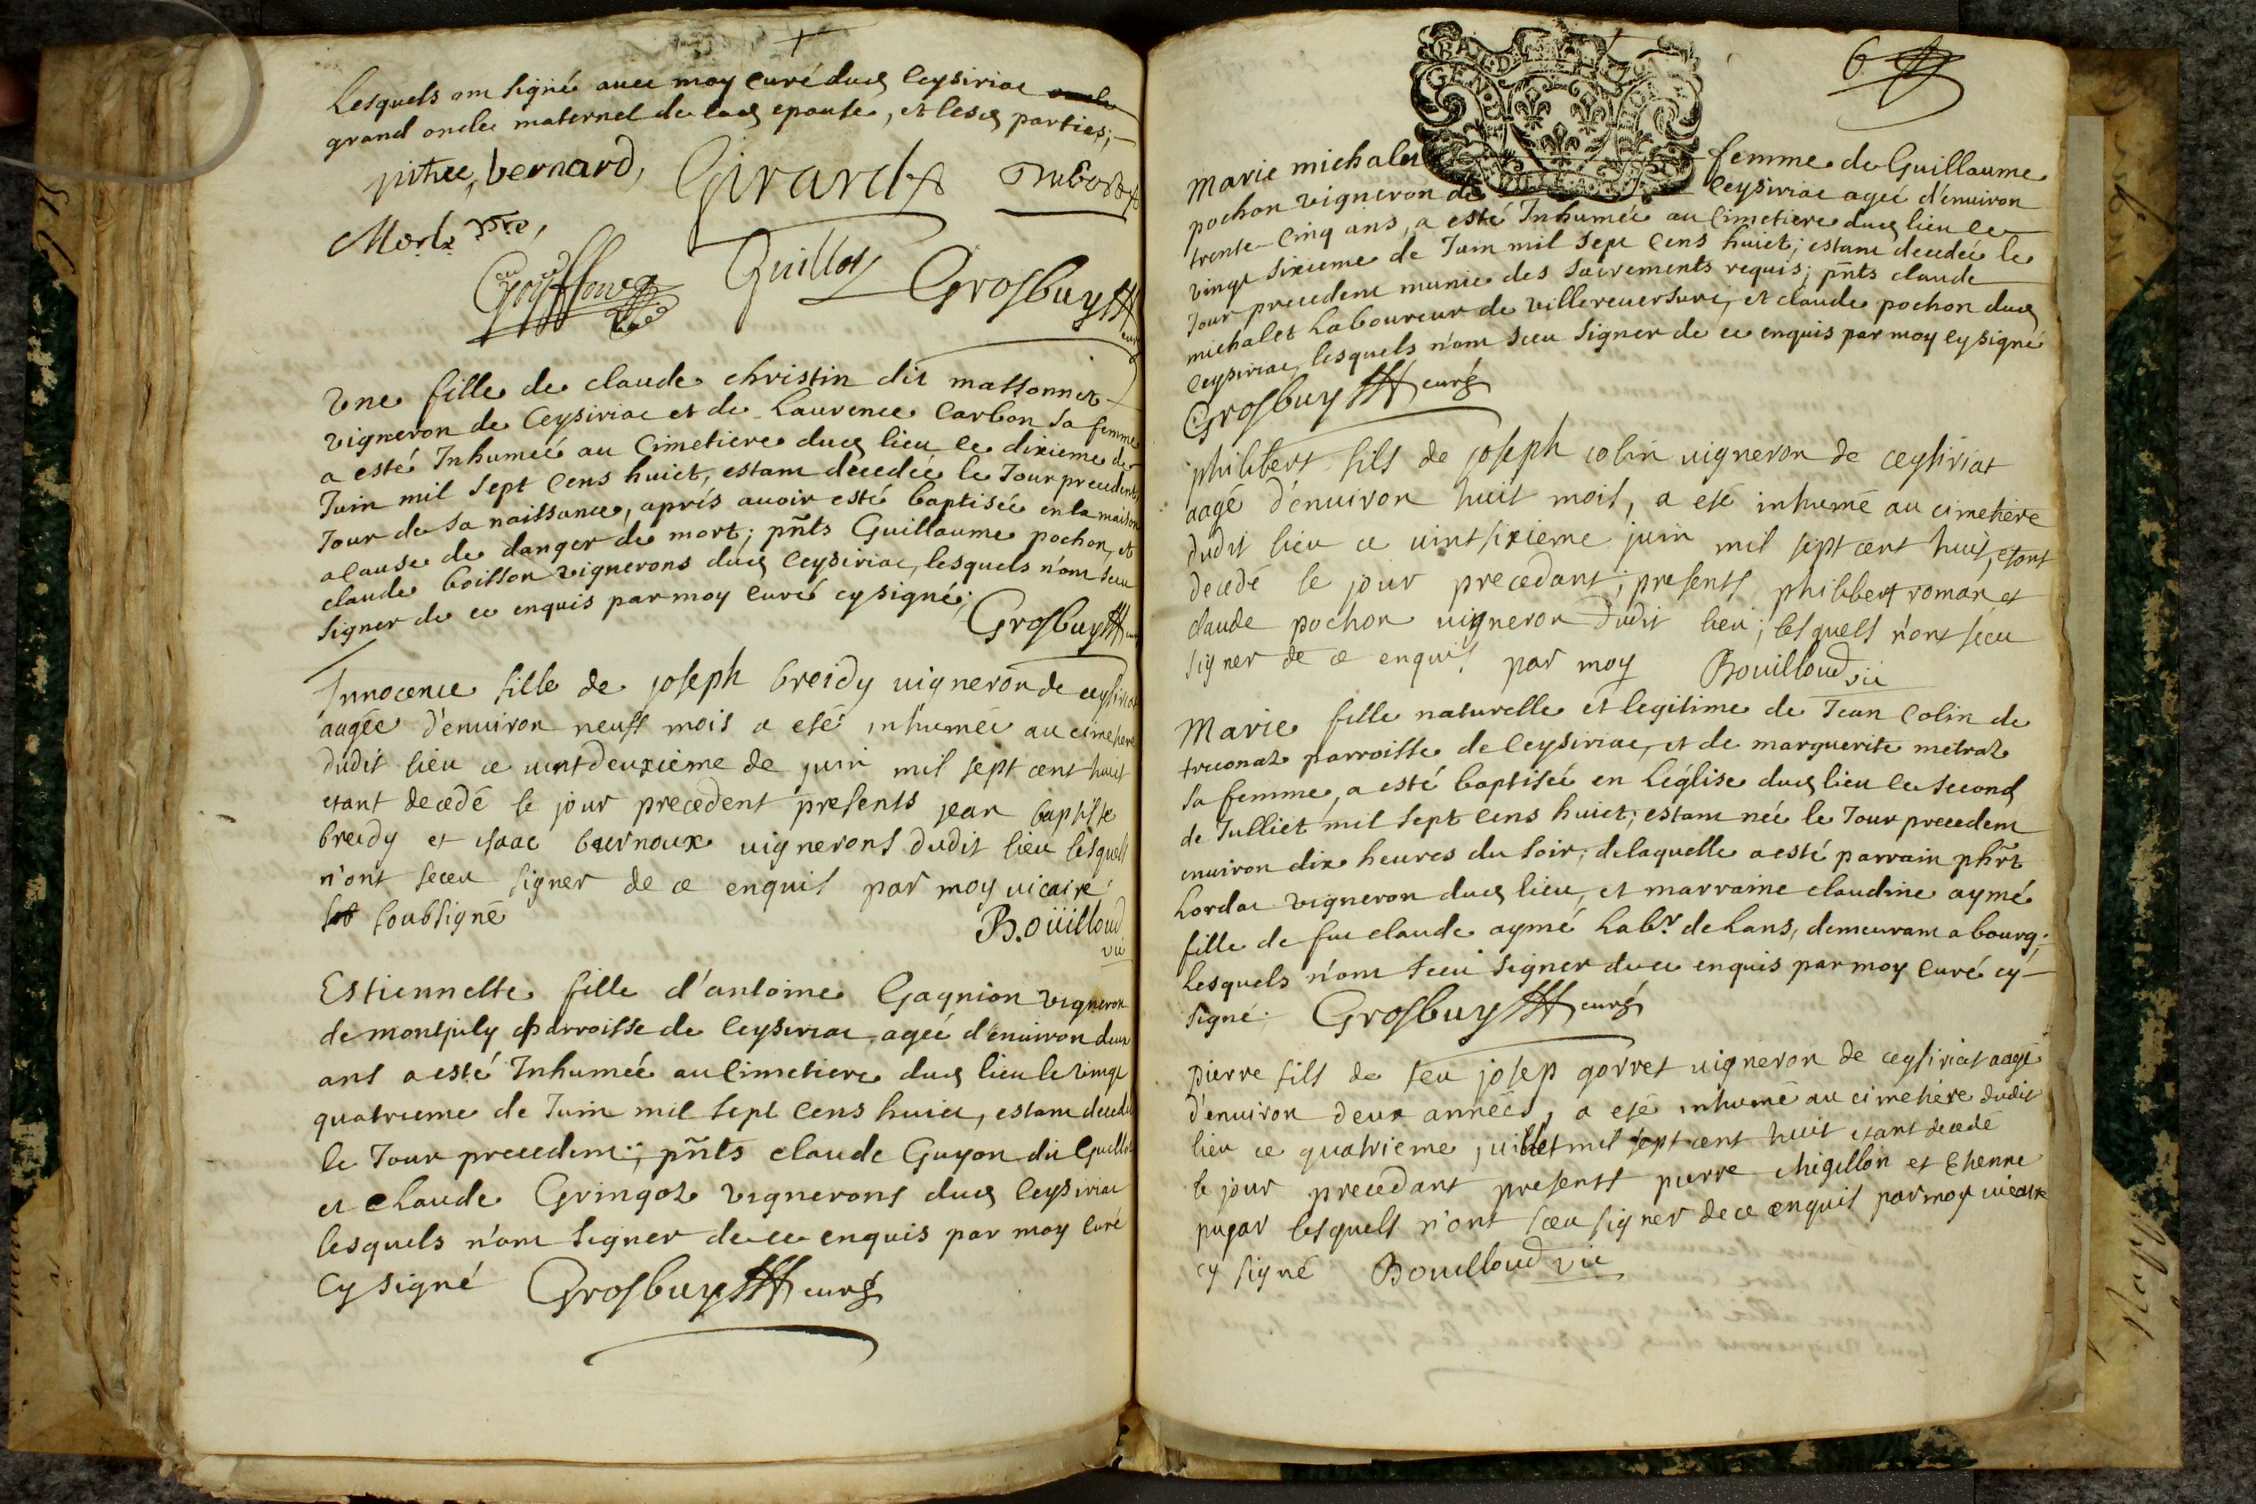 Lesquels ont signé avec moy curé dud Ceysiriac
grand oncle maternel de lad epouse, et lesd parties;
pithre, bernard, Girard Dubost
Morl pre,
Guillot Grosbuy curé
Une fille de claude christin dit massonnet
vigneron de Ceysiriac et de Laurence Carbon sa femme
a esté Inhumeé au Cimetiere dud lieu ce dixieme de
Juin mil sept Cens huict, estant decedeé le Jour precedent
Jour de sa naissance, aprés avoir esté baptiseé en la maison
acause de danger de mort; pñts Guillaume pochon, et
claude boisson vignerons dud Ceysiriac, lesquels n'ont sceu
signer de ce enquis par moy Curé cysigné; Grosbuy
Innocence fille de joseph breidy uigneron de ceysiriat
aagée d'enuiron neuff mois a eté inhumée au cimetiere
dudit lieu ce uintdeuxième de juin mil sept cent huit
etant decedé le jour precedent presents jean baptiste
breidy et isaac burnoux uignerons dudit lieu lesquels
n'ont sceu signer de ce enquis par moy uicaire
soubsigné B.oüilloud
vic
Estiennette fille d'antoine Gagnion vigneron
de montjuly parroisse de Ceysiriac, ageé d'enuiron deux
ans a esté Inhumeé au Cimetiere dud lieu le vingt
quatrieme de Juin mil sept Cens huict, estant decedeé
le Jour precedent; pñts claude Guyon dit Guille
et Claude Gringoz vignerons dud Ceysiriac
lesquels n'ont signer de ce enquis par moy Curé
Cysigné Grosbuy curé
6
Marie michalet femme de Guillaume
pochon vigneron de Ceysiriac ageé d'enuiron
trente-Cinq ans, a esté Inhumeé au Cimetiere dud lieu ce
vingt sixieme de Juin mil sept Cens huict; estant decedeé le
Jour precedent munie des sacrements requis; pñts claude
michalet Laboureur de villereuersure, et claude pochon dud
Ceysiriac, lesquels n'ont sceu signer de ce enquis par moy Cysigné
Grosbuy curé
philibert fils de joseph colin uigneron de ceysiriat
aagé d'enuiron huit mois, a eté inhumé au cimetiere
dudit lieu ce uintsixieme juin mil sept cent huit, etant
decedé le jour precedant; presents philibert roman et
claude pochon uigneron dudit lieu; lesquels n'ont sceu
signer de ce enquis par moy Bouilloud vic
Marie fille naturelle et legitime de Jean Colin de
treconaz parroisse de Ceysiriac, et de marguerite metraz
sa femme, a esté baptiseé en L'église dud lieu le second
de Julliet mil sept Cens huict; estant neé le Jour precedent
enuiron dix heures du soir; de laquelle a esté parrain phrt
Lordac vigneron dud lieu, et marraine claudine aymé
fille de fue claude aymé Labr. de Lans, demeurant a bourg;
Lesquels n'ont sceu signer de ce enquis par moy Curé cy-
signé. Grosbuy curé
pierre fils de feu josep gorret uigneron de ceysiriat aagé
d'enuiron deux années, a eté inhumé au cimetiere dudit
lieu ce quatrieme juillet mil sept cent huit etant decedé
le jour precedant presents pierre chigillon et Etienne
pugar lesquels n'ont sceu signer de ce enquis par moy uicaire
cy signé Bouilloud vic